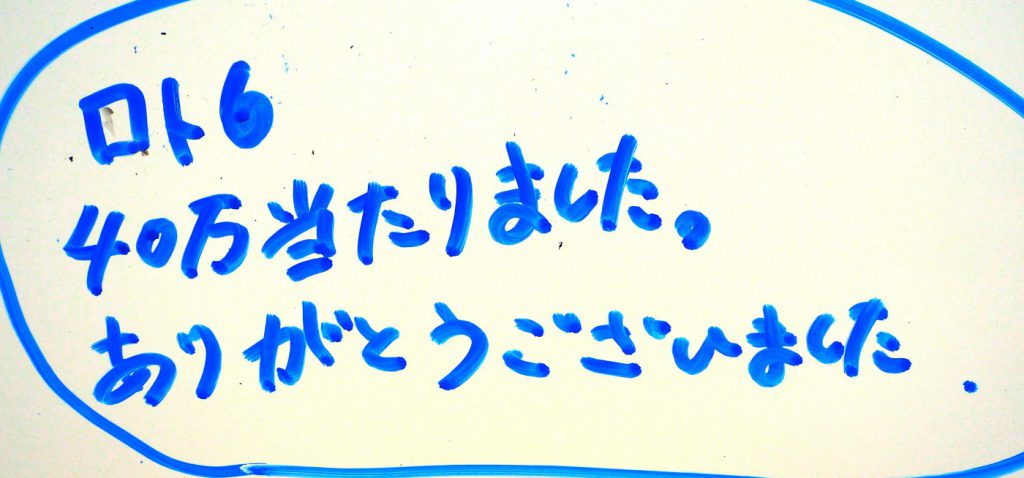 ロト6
40万当たりました。
ありがとうございました.